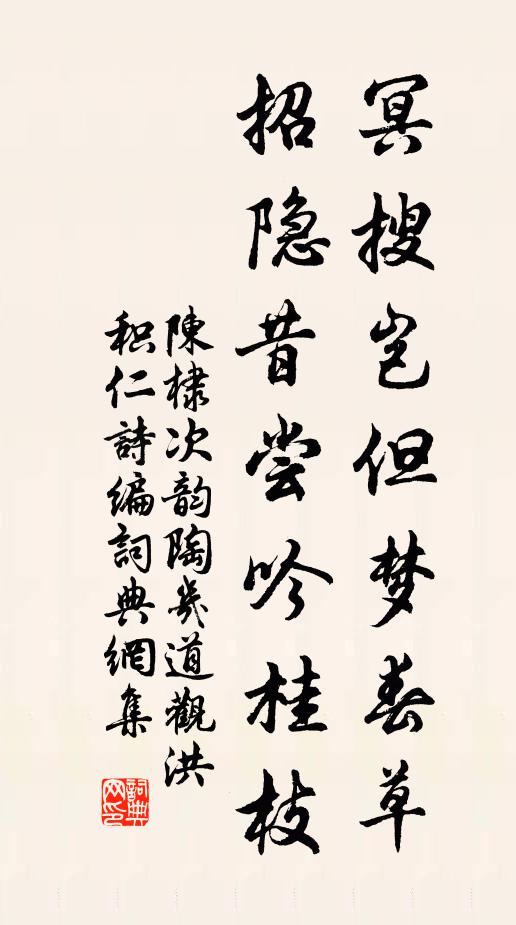 冥搜岂但梦春草
招隐昔尝吟桂枝
陳棣次韵陶幾道觀洪
积仁詩编詞典網集
詞典
网印